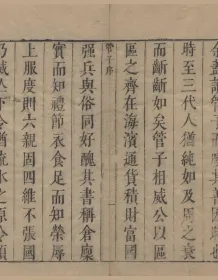 時至三代人猶純如及周之衰
而斷斷如矣管子相威公以區
管子序
區之齊在海濱通貨積財富國
强兵與俗同好醜其書稱倉廩
實而知禮節衣食足而知榮辱
上服度則六親固四維不張國
乃滅亡下令猶流水之原令順